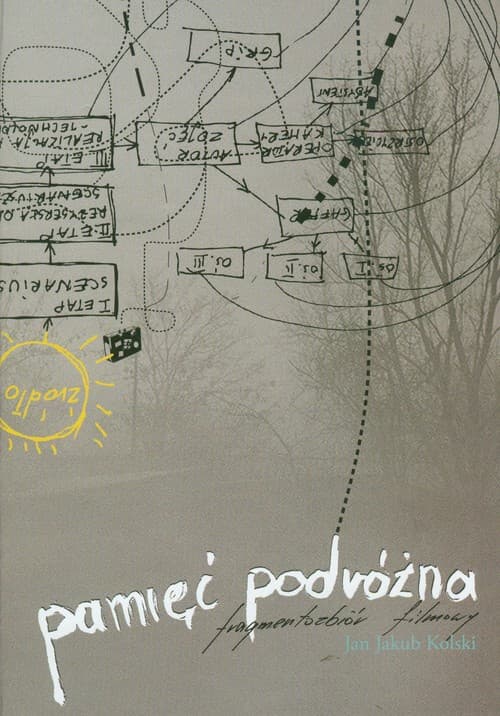 GRIP
ASYSTENT
III ETAP
REALIZACJA
TECHNOLOG
AUTOR
ZDJĘĆ
OPERATOR
KAMERY
OSTRZYCIEL
II ETAP
REŻYSERSKA OB
SCENARIUSZ
GAFFER
OŚ. III
OŚ. II
OŚ. I
I ETAP
SCENARIUS
źródło
pamięć podróżna
fragmentozbiór filmowy
Jan Jakub Kolski